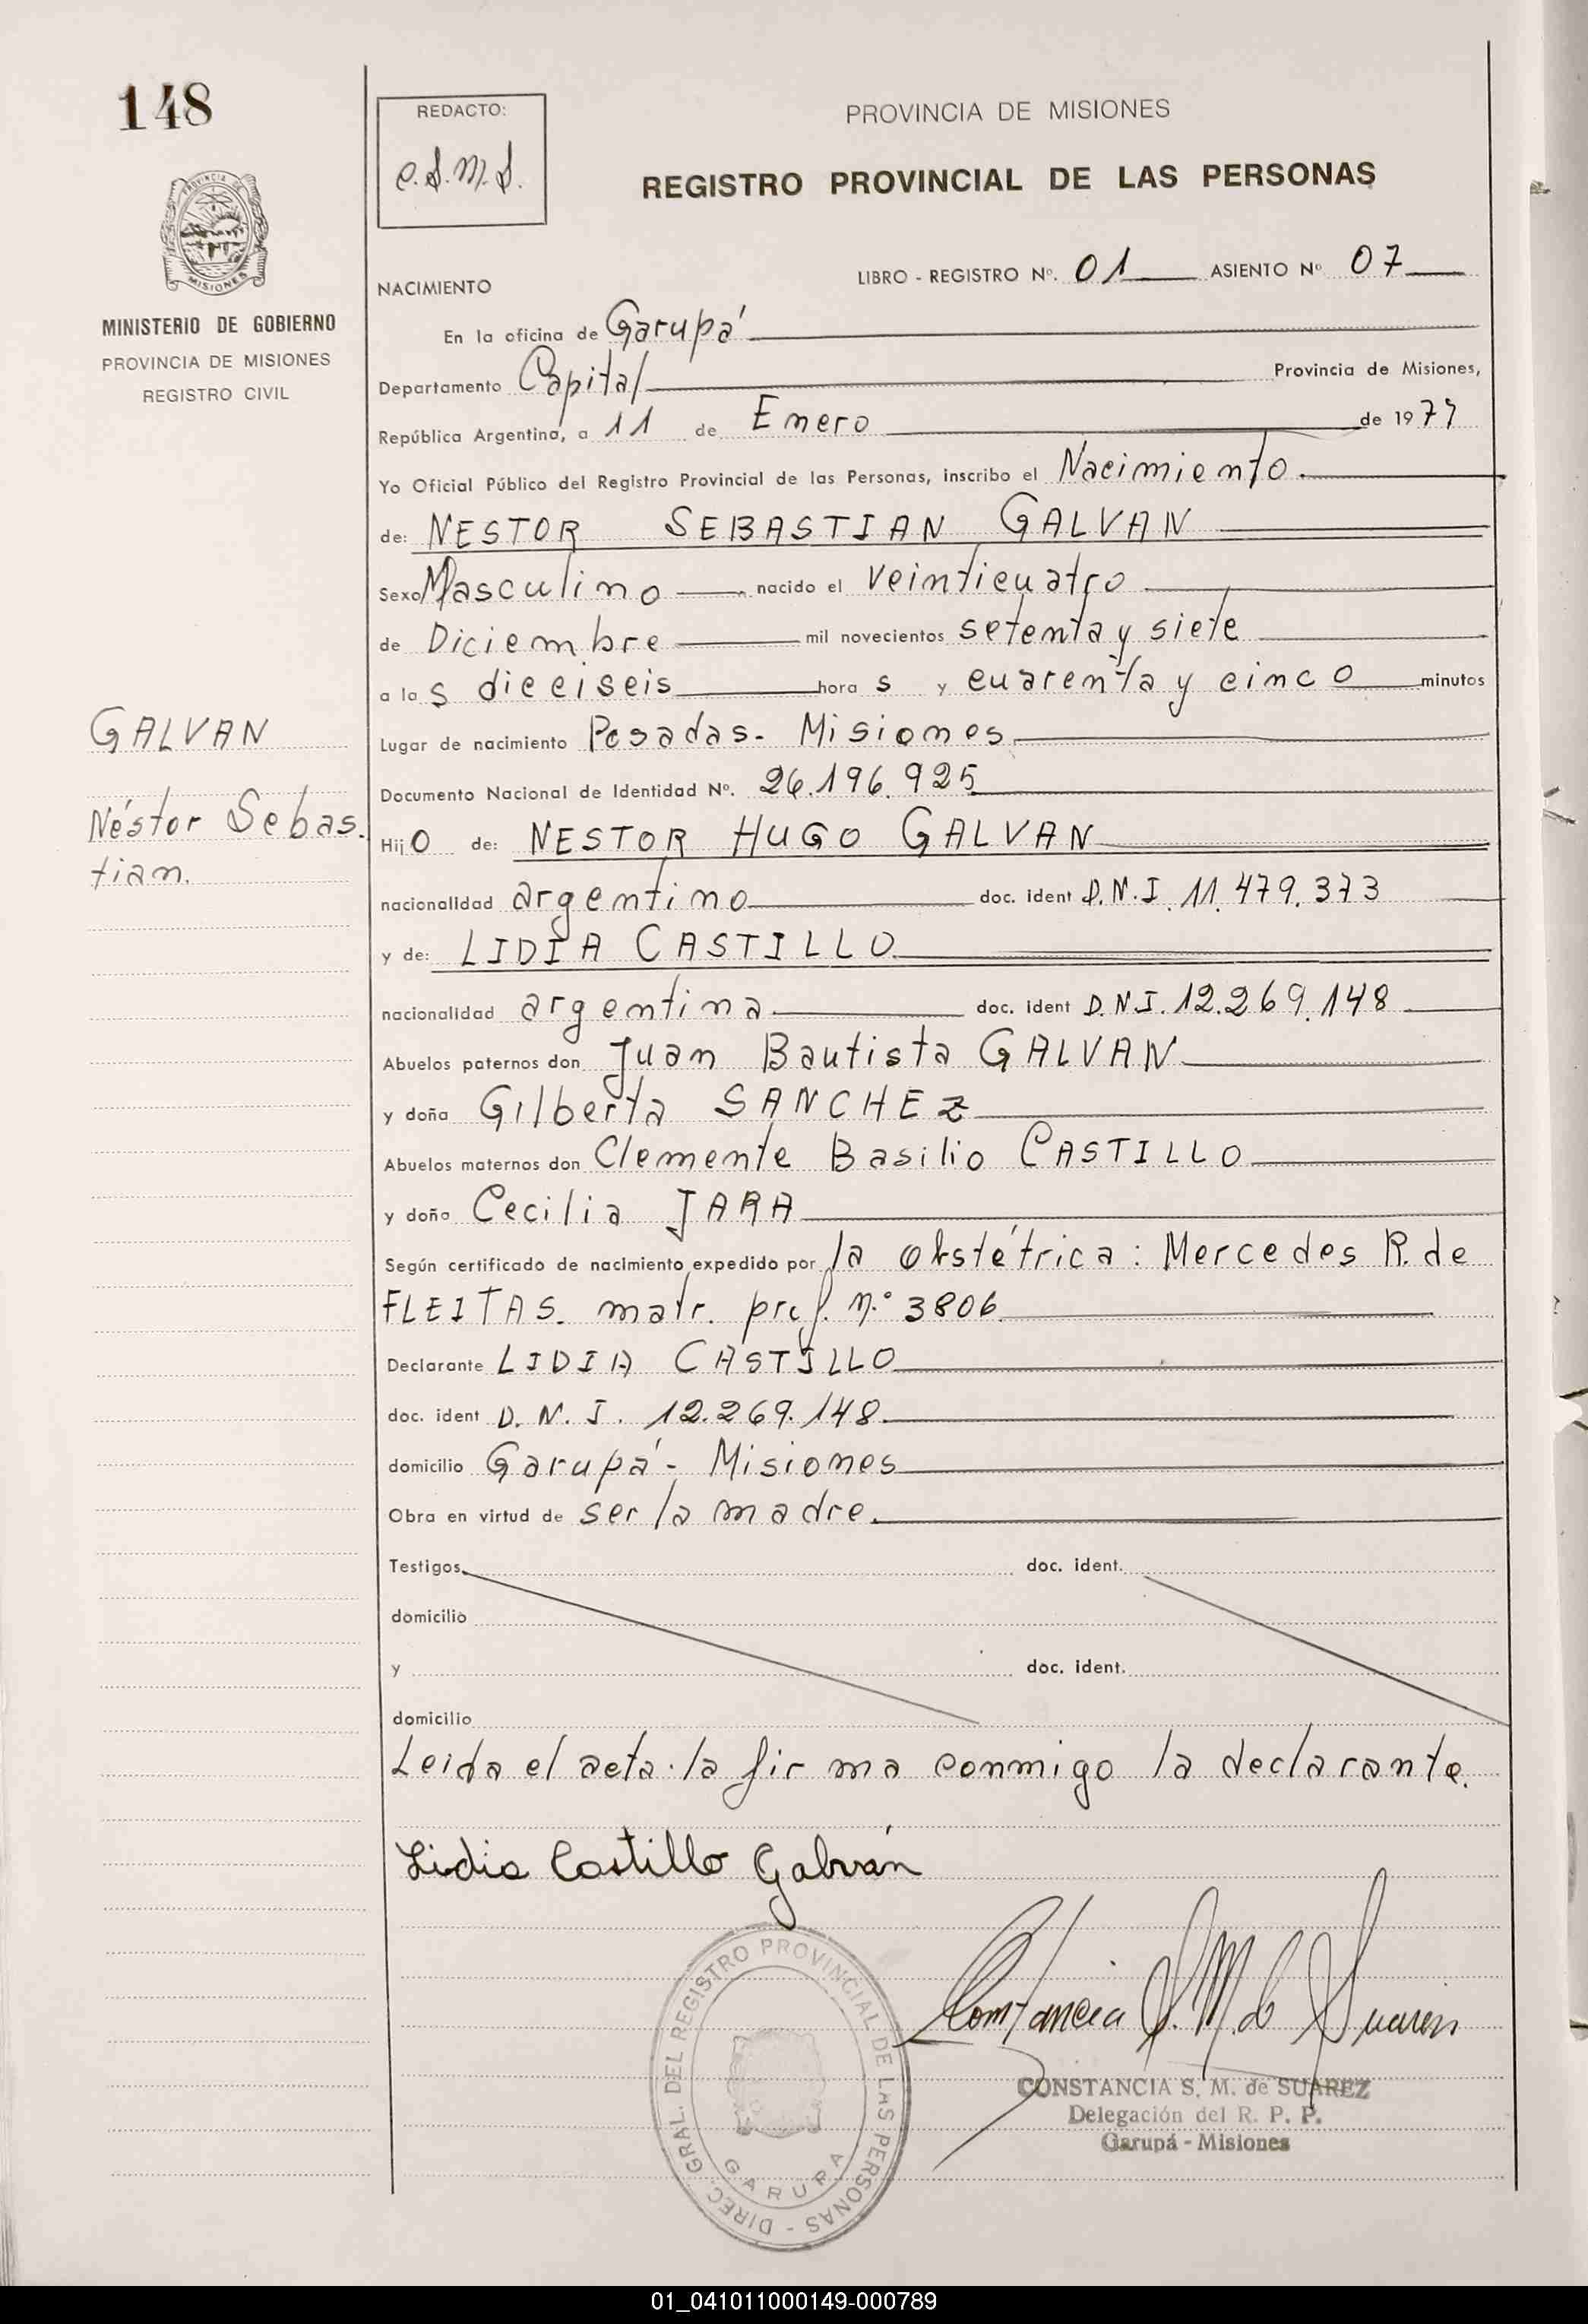 148
REDACTO:
C.S.M.S.
PROVINCIA DE MISIONES
REGISTRO PROVINCIAL DE LAS PERSONAS
PROVINCIA DE
MISIONES
MINISTERIO DE GOBIERNO
PROVINCIA DE MISIONES
REGISTRO CIVIL
NACIMIENTO
LIBRO - REGISTRO Nº. 01 ASIENTO Nº 07
En la oficina de Garupá
Departamento Capital Provincia de Misiones,
República Argentina, a 11 de Enero de 1977
Yo Oficial Público del Registro Provincial de las Personas, inscribo el Nacimiento.
de: NESTOR SEBASTIAN GALVAN
Sexo Masculino nacido el veinticuatro
de Diciembre mil novecientos setenta y siete
a las dieciseis horas y cuarenta y cinco minutos
GALVAN
Néstor Sebas.
tian.
Lugar de nacimiento Posadas - Misiones
Documento Nacional de Identidad Nº. 26.196.925
Hijo de: NESTOR HUGO GALVAN
nacionalidad argentino doc. ident D.N.I. 11.479.373
y de: LIDIA CASTILLO
nacionalidad argentina doc. ident D.N.I. 12.269.148
Abuelos paternos don Juan Bautista GALVAN
y doña Gilberta SANCHEZ
Abuelos maternos don Clemente Basilio CASTILLO
y doña Cecilia JARA
Según certificado de nacimiento expedido por la obstétrica: Mercedes R. de
FLEITAS. matr. prof. n.º 3806
Declarante LIDIA CASTILLO
doc. ident D.N.I. 12.269.148.
domicilio Garupá - Misiones
Obra en virtud de ser la madre.
Testigos doc. ident.
domicilio
y doc. ident.
domicilio
Leida el acta. la firma conmigo la declarante.
Lidia Castillo Galván
Constancia S. M. de Suarez
CONSTANCIA S. M. de SUAREZ
Delegación del R. P. P.
Garupá - Misiones
DIREC. GRAL. DEL REGISTRO PROVINCIAL DE LAS PERSONAS -
GARUPA
01_041011000149-000789